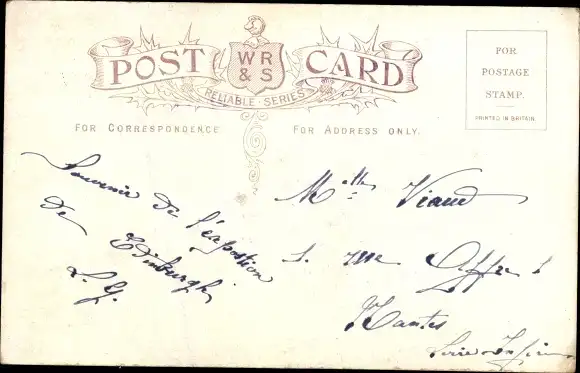 POST CARD
W R & S
RELIABLE SERIES
FOR CORRESPONDENCE
FOR ADDRESS ONLY.
FOR
POSTAGE
STAMP.
PRINTED IN BRITAIN.
Souvenir de l'éxposition
de Edinburgh
L. G.
Melle Viaud
rue
Nantes
Loire-Infre